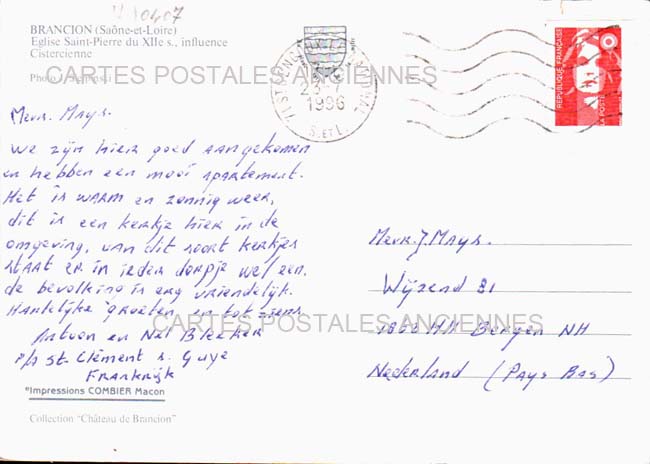 BRANCION (Saône-et-Loire)
Eglise Saint-Pierre du XIIe s., influence
Cistercienne
CARTES POSTALES ANCIENNES
Mevr. Mays.
We zijn hier goed aangekomen
en hebben een mooi apartement.
Het is warm en zonnig weer,
dit is een kerkje hier in de
omgeving, van dit soort kerkjes
staat er in ieder dorpje wel een.
de bevolking is erg vriendelijk.
Hartelijke groeten, en tot ziens
Antoon en Nel Bleeker
St. Clément s. Guye
Frankrijk
*Impressions COMBIER Macon
Collection "Château de Brancion"
23-7
1996
S. ET L.
REPUBLIQUE FRANÇAISE
LA POSTE
Mevr. J Mays.
Wijzend 81
CARTES POSTALES ANCIENNES
1862 HH Bergen NH
Nederland (Pays Bas)